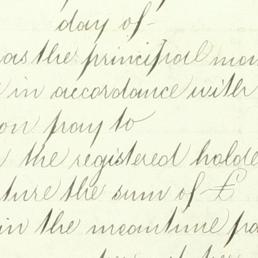 day of
as the principal mon
in accordance with
on pay to
the registered holde
ture the sum of £
in the meantime pa